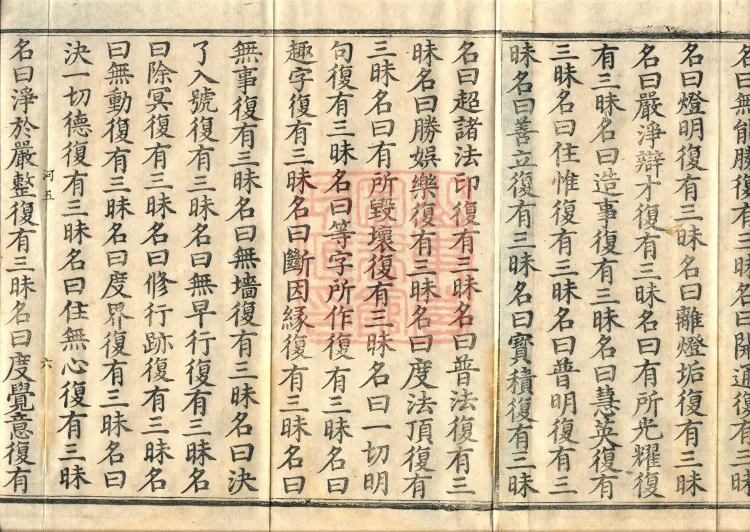 名曰無能勝復有三昧名曰開通復有三昧
名曰燈明復有三昧名曰離燈垢復有三昧
名曰嚴淨辯才復有三昧名曰有所光耀復
有三昧名曰造事復有三昧名曰慧英復有
三昧名曰住惟復有三昧名曰普明復有三
昧名曰善立復有三昧名曰寶積復有三昧
名曰超諸法印復有三昧名曰普法復有三
昧名曰勝娛樂復有三昧名曰度法頂復有
三昧名曰有所毀壞復有三昧名曰一切明
句復有三昧名曰等字所作復有三昧名曰
趣字復有三昧名曰斷因緣復有三昧名曰
無事復有三昧名曰無墻復有三昧名曰決
了入號復有三昧名曰無早行復有三昧名
曰除冥復有三昧名曰修行跡復有三昧名
曰無動復有三昧名曰度界復有三昧名曰
決一切德復有三昧名曰住無心復有三昧
河五
六
名曰淨於嚴整復有三昧名曰度覺意復有